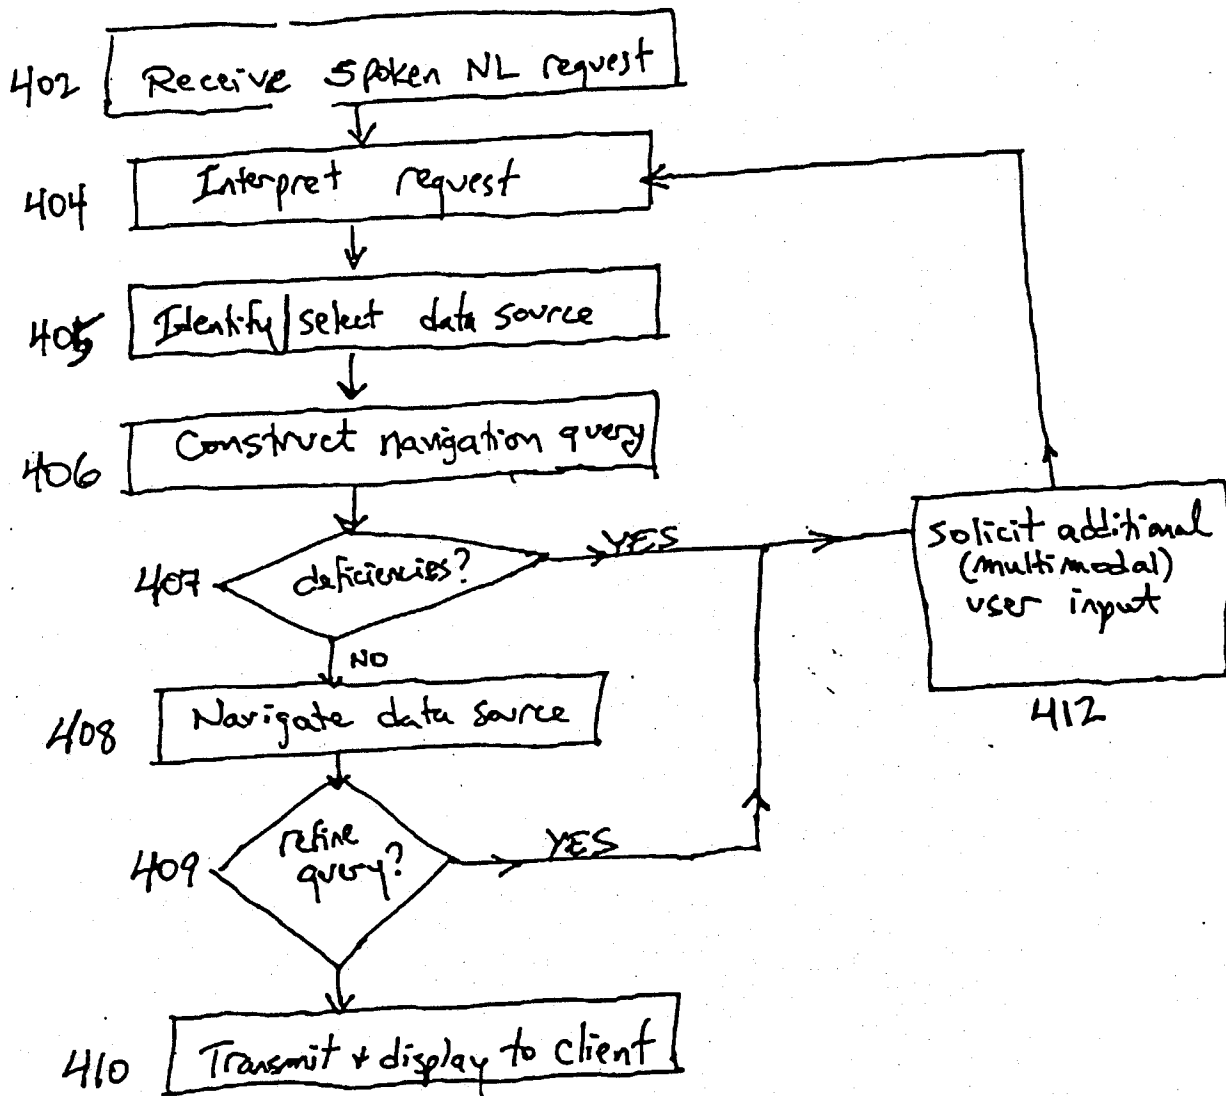 402 Receive Spoken NL request
404 Interpret request
405 Identify/select data source
406 Construct navigation query
407 deficiencies?
YES
solicit additional
(multimodal)
user input
412
NO
408 Navigate data source
409 refine
query?
YES
410 Transmit + display to client